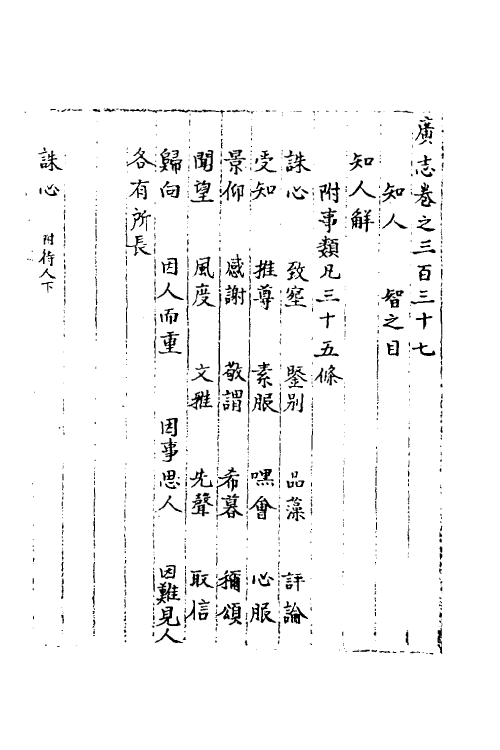 廣志卷之三百三十七
知人　智之目
知人解
附事類凡三十五條
誅心　致室　鑒别　品藻　評論
受知　推尊　素服　嘿會　心服
景仰　感謝　敬謂　希暮　稱頌
聞望　風度　文雅　先聲　取信
歸向　因人而重　因事思人　因難見人
各有所長
誅心　附待人下